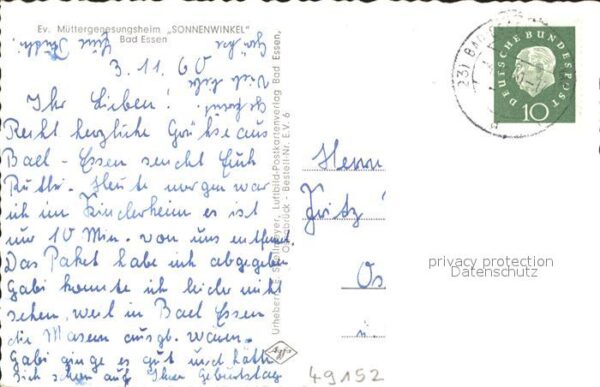 Ev. Müttergenesungsheim „SONNENWINKEL"
Bad Essen
3.11.60
Ihr Lieben!
Recht herzliche Grüsse aus
Bad-Essen sendet Euch
Ruth. Heute morgen war
ich im Kinderheim es ist
nur 10 Min. von uns entfernt
Das Paket habe ich abgegeben
Gabi konnte ich leider nicht
sehen, weil in Bad Essen
die Masern ausgb. waren.
Gabi ginge es gut und hätte
sich schon auf Ihren Geburtstag
Urheber: Luftbild-Postkartenverlag Bad Essen,
Osnabrück - Bestell-Nr. E.V. 6
Herrn
Fritz
Os
DEUTSCHE BUNDESPOST
10
privacy protection
Datenschutz
49152